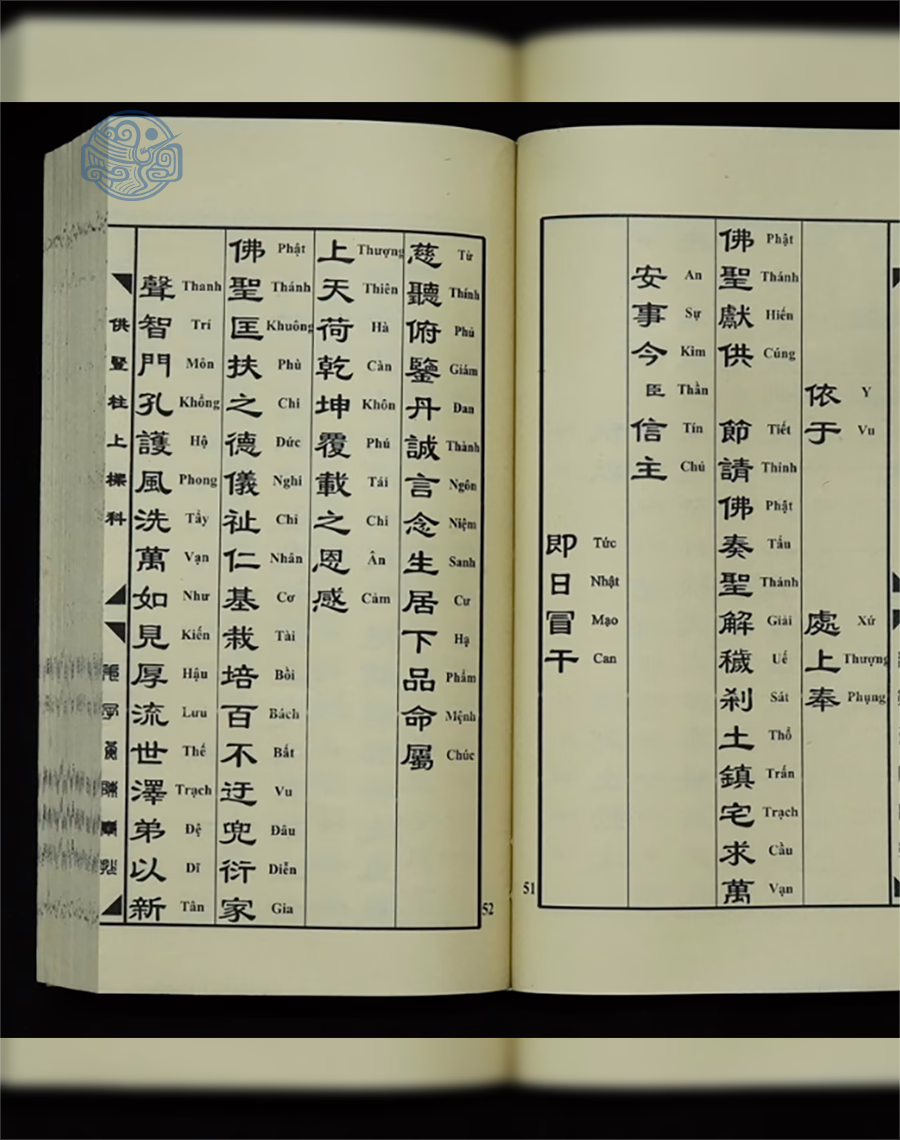 依于 處上奉
Y Vu Xứ Thượng Phụng
佛聖獻供 節請佛奏聖解穢剎土鎮宅求萬
Phật Thánh Hiến Cúng Tiết Thỉnh Phật Tấu Thánh Giải Uế Sát Thổ Trấn Trạch Cầu Vạn
安事今臣信主
An Sự Kim Thần Tín Chủ
即日冒干
Tức Nhật Mạo Can
51
慈聽俯鑒丹誠言念生居下品命屬
Từ Thính Phủ Giám Đan Thành Ngôn Niệm Sanh Cư Hạ Phẩm Mệnh Chúc
上天荷乾坤覆載之恩感
Thượng Thiên Hà Càn Khôn Phú Tái Chi Ân Cảm
佛聖匡扶之德儀祉仁基栽培百不迂兜衍家
Phật Thánh Khuông Phù Chi Đức Nghi Chỉ Nhân Cơ Tài Bồi Bách Bất Vu Đâu Diễn Gia
聲智門孔護風洗萬如見厚流世澤弟以新
Thanh Trí Môn Khổng Hộ Phong Tẩy Vạn Như Kiến Hậu Lưu Thế Trạch Đệ Dĩ Tân
供竪柱上樑科
52